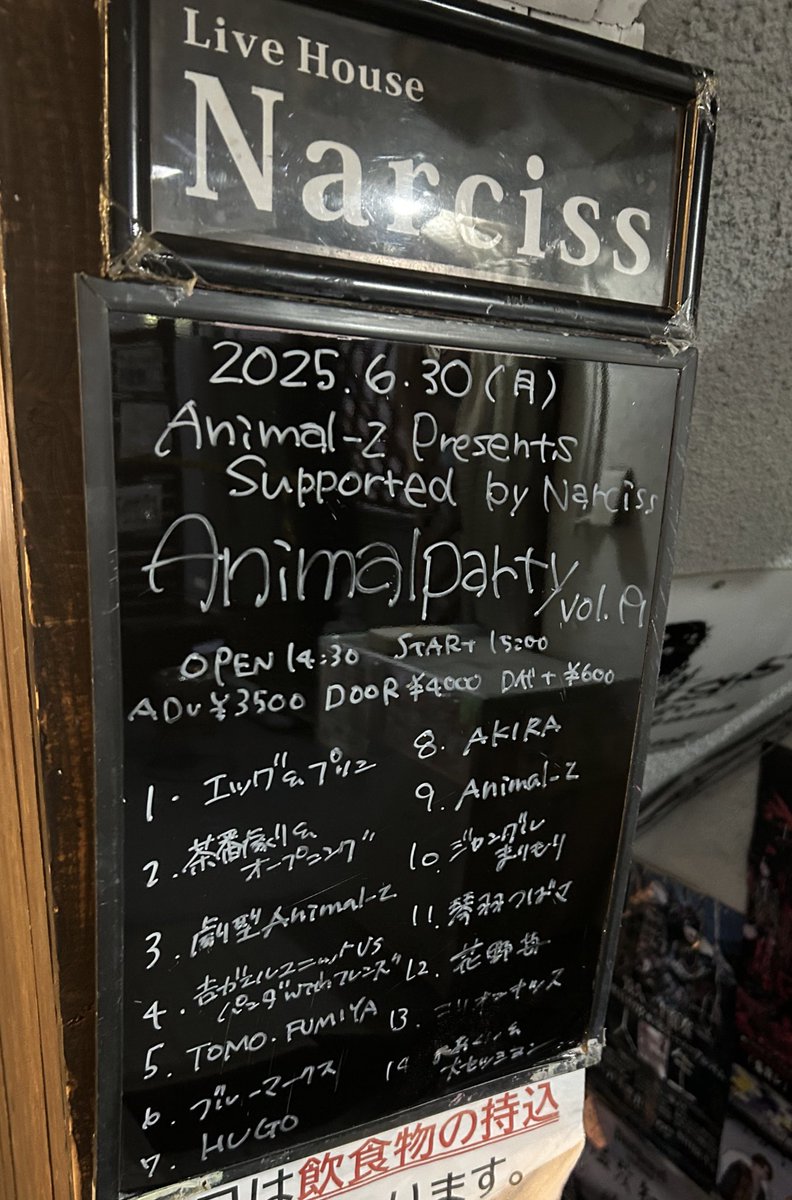 Live House
Narciss
2025.6.30(月)
Animal-Z Presents
Supported by Narciss
Animalparty
vol.
OPEN 14:30 START 15:00
ADV ¥3500 DOOR ¥4000 + ¥600
1. エッグ&プリン
2. 茶番劇&
オープニング
3. 劇型Animal-Z
4. 吉がエルユニットVS
パンダwithフレンズ
5. TOMO.FUMIYA
6. ブルーマークス
7. HUGO
8. AKIRA
9. Animal-Z
10. ジロングル
まりもり
11. 琴羽つばさ
12. 花野
13.
14
大セッション
飲食物の持込
ります。